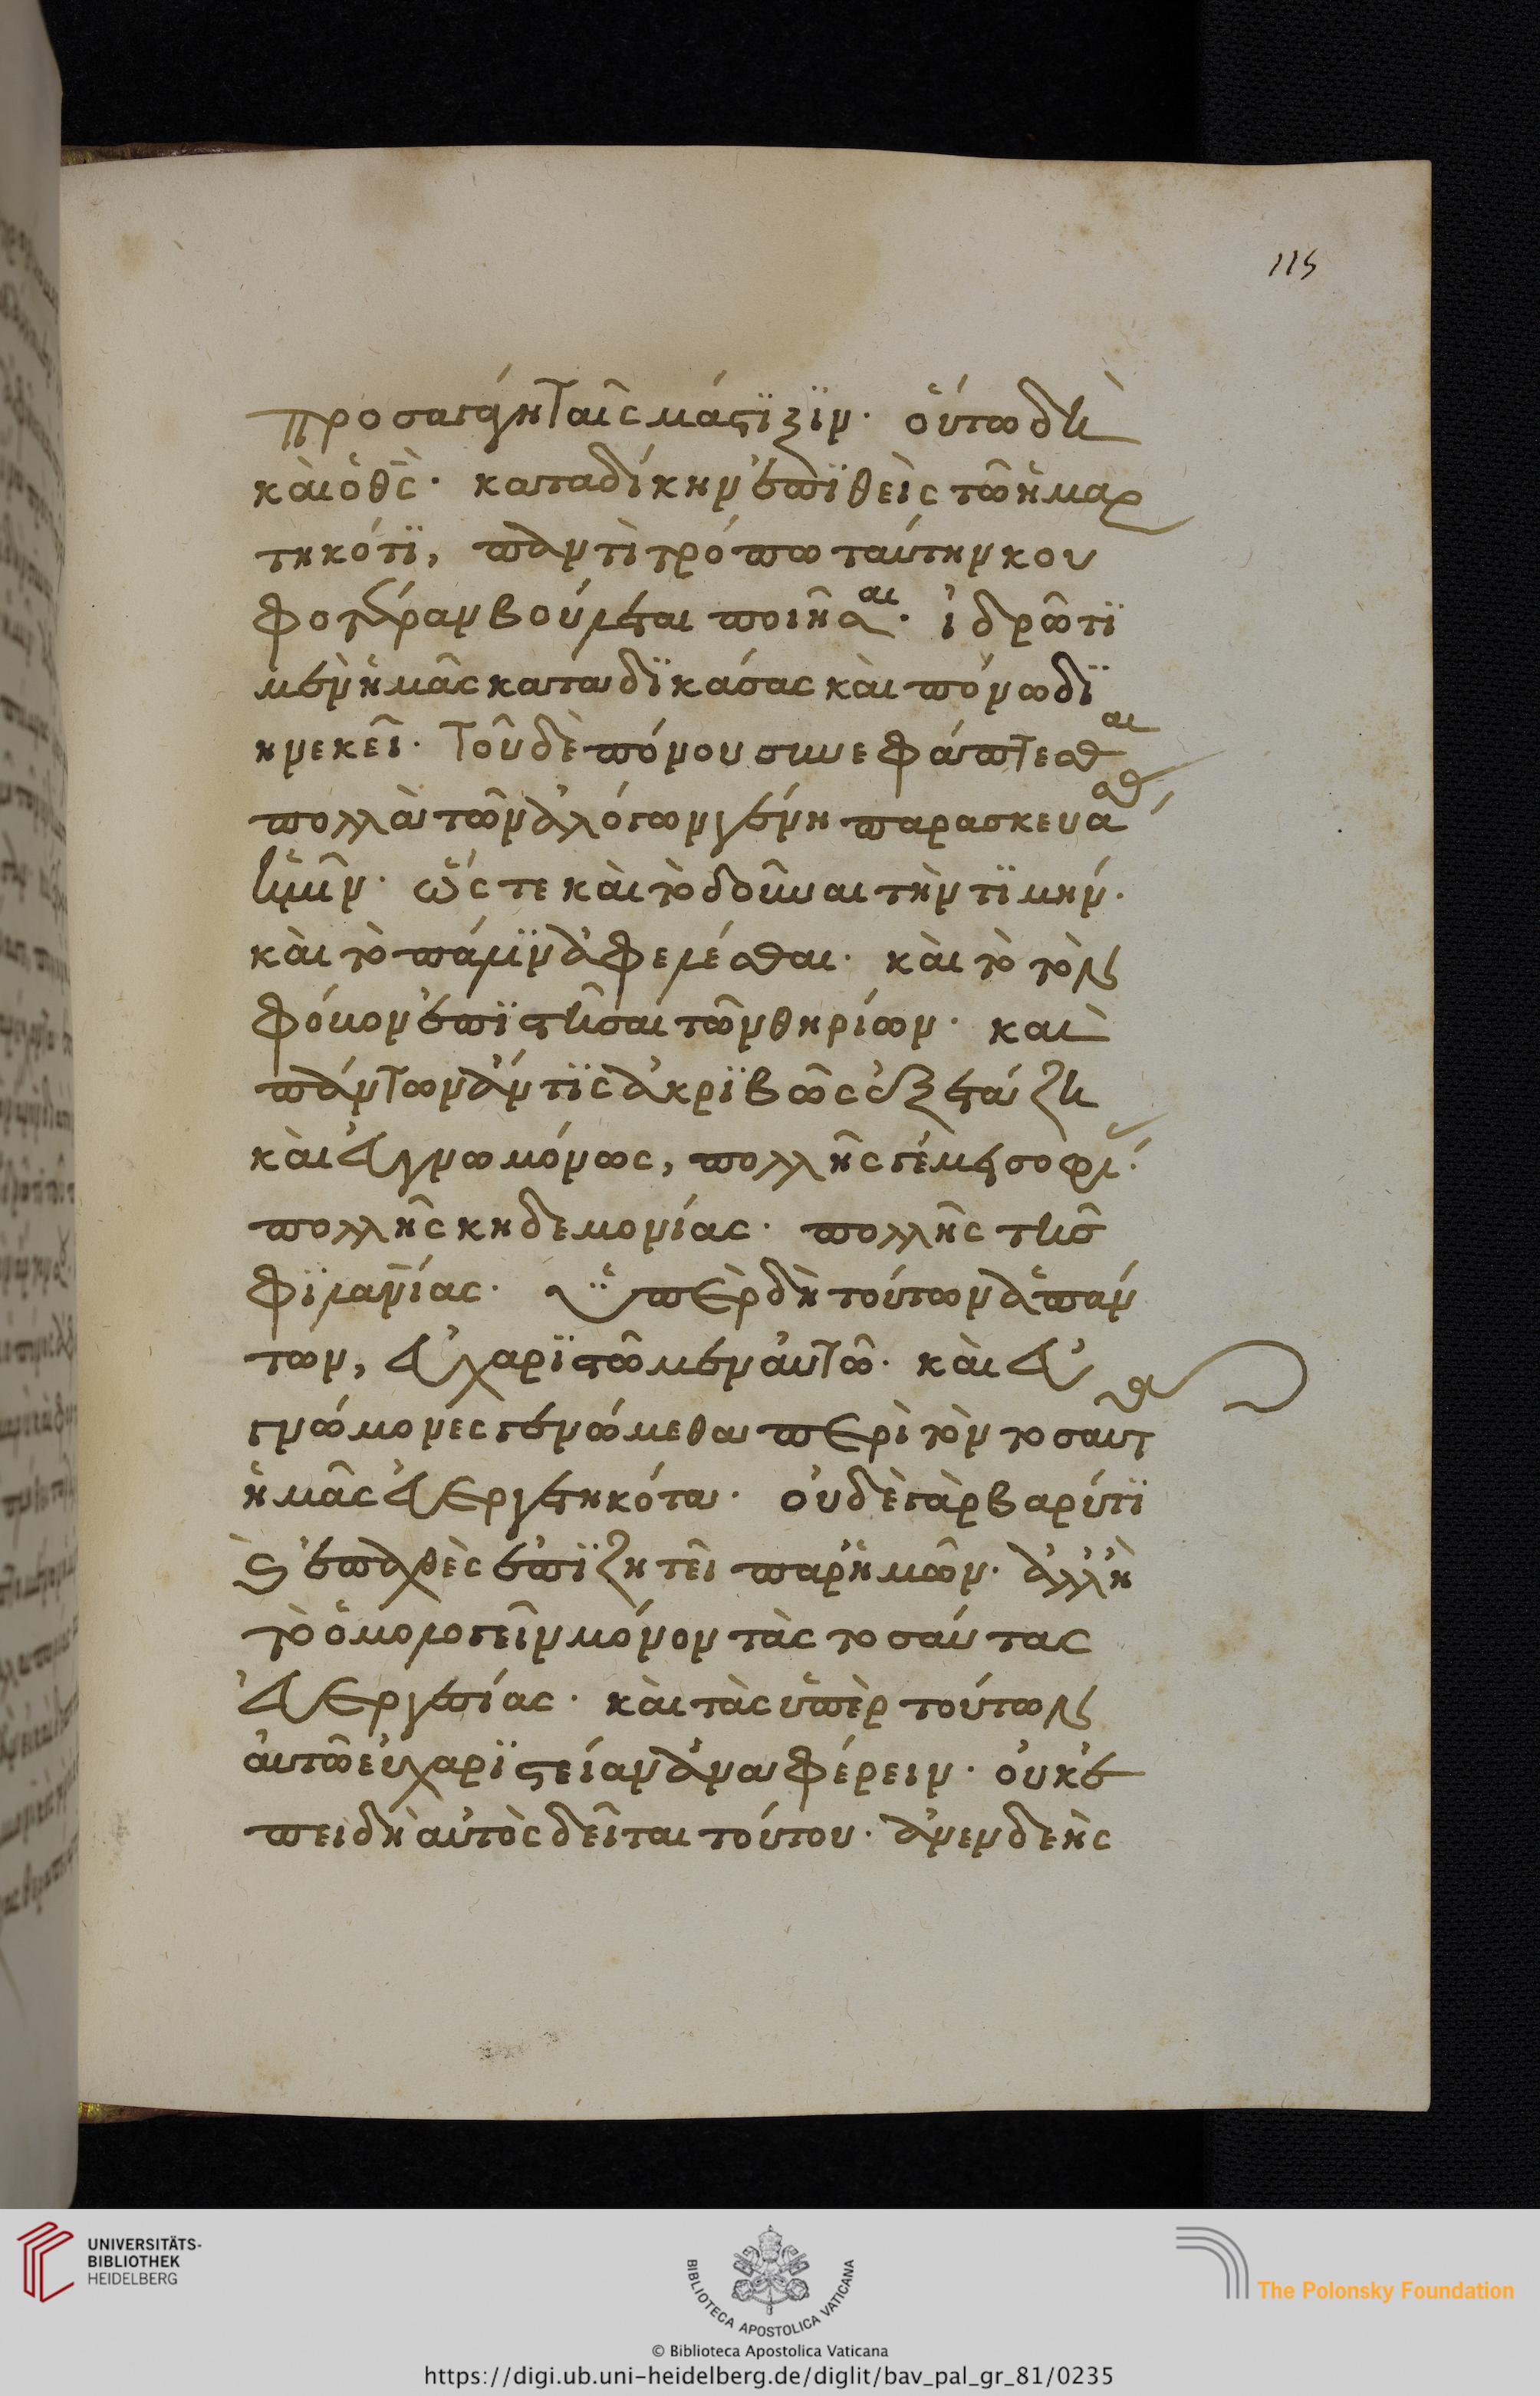 115
προσαγάγη ταῖς μάστιξιν· οὕτω δὴ
καὶ ὁ θς· καταδίκην ἐπιθεὶς τῶ ἡμαρ
τηκότι, παντὶ τρόπω ταύτην κου
φοτέραν βούλεται ποιῆσαι· ἱδρῶτι
μὲν ἡμᾶς καταδικάσας καὶ πόνω δι
ηνεκεῖ· τοῦ δὲ πόνου συνεφάπτεσθαι
πολλὰ τῶν ἀλόγων γένη παρασκευάσας
ἡμῖν· ὥστε καὶ τὸ δοῦναι τὴν τιμήν·
καὶ τὸ πάλιν ἀφελέσθαι· καὶ τὸ τὸν
φόβον ἐπιστῆσαι τῶν θηρίων· καὶ
πάντων ἄν τις ἀκριβῶς ἐξετάζη
καὶ εὐγνωμόνως, πολλῆς γέμει σοφί·
πολλῆς κηδεμονίας· πολλῆς τῆς
φιλανίας· ὑπὲρ δὴ τούτων ἁπάν
των, εὐχαριστῶμεν αὐτῶ· καὶ εὐ
γνώμονες γενώμεθα περὶ τὸν τοσαῦτα
ἡμᾶς εὐεργετηκότα· οὐδὲ γὰρ βαρύ τι
καὶ ἐπαχθὲς ἐπιζητεῖ παρ' ἡμῶν· ἀλλ' ἢ
τὸ ὁμολογεῖν μόνον τὰς τοσαύτας
εὐεργεσίας· καὶ τὰς ὑπὲρ τούτων
αὐτῶ εὐχαριστείαν ἀναφέρειν· οὐκ ἐ
πειδὴ αὐτὸς δεῖται τούτου· ἀνενδεὴς
UNIVERSITÄTS-
BIBLIOTHEK
HEIDELBERG
BIBLIOTECA APOSTOLICA VATICANA
The Polonsky Foundation
© Biblioteca Apostolica Vaticana
https://digi.ub.uni-heidelberg.de/diglit/bav_pal_gr_81/0235